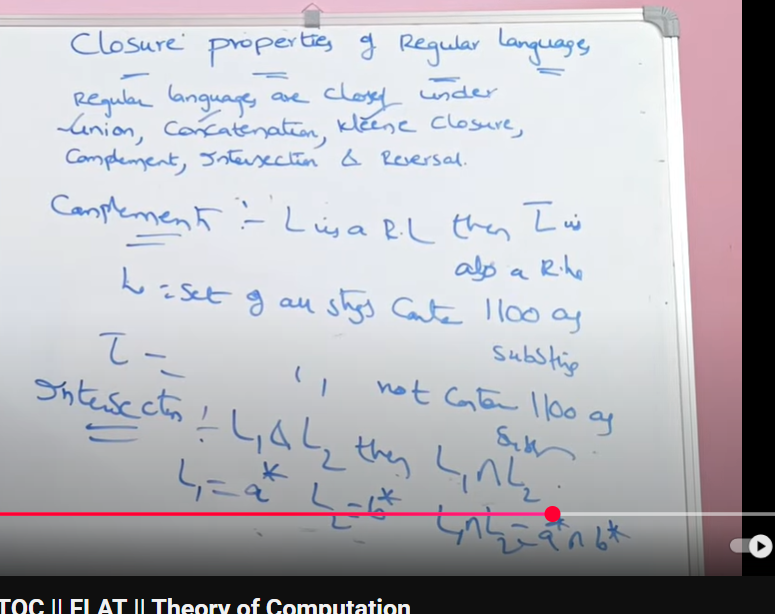 Closure properties of Regular languages
Regular languages are closed under
Union, Concatenation, Kleene Closure,
Complement, Intersection & Reversal.
Complement :- L is a R.L then L̅ is
also a R.L
L = Set of all strgs Conta 1100 as
substring
L̅ =
" not Contan 1100 as
Intersectn :- L₁ & L₂ then L₁∩L₂.
L₁ = a* L₂ = b* L₁∩L₂ = a*∩b*
TOC || FLAT || Theory of Computation